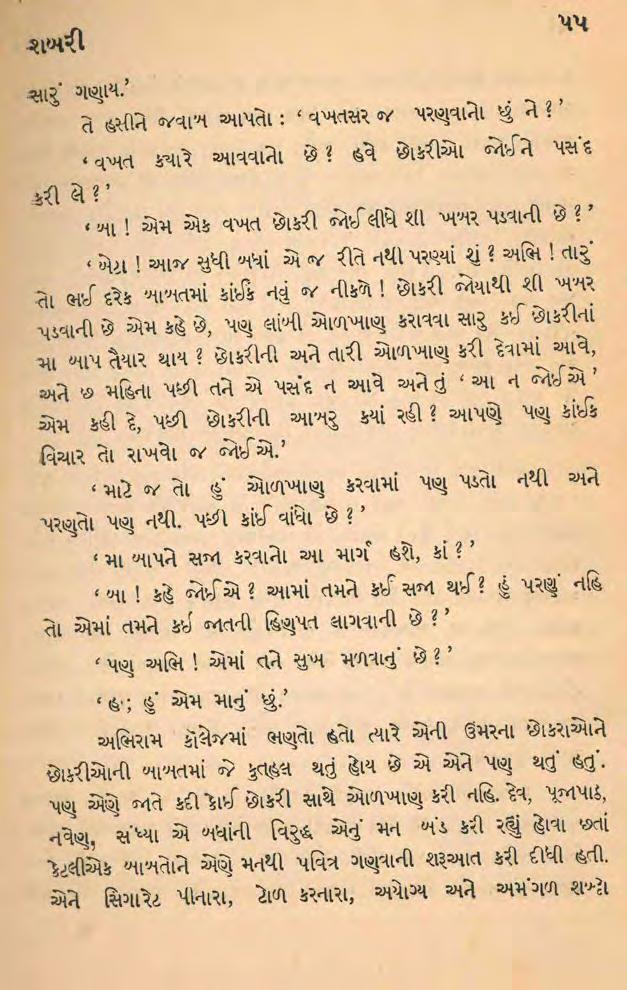 ૫૫
શબરી
સારું ગણાય.’
તે હસીને જવાબ આપતો : ‘ વખતસર જ પરણવાનો છું ને ? ’
‘ વખત ક્યારે આવવાનો છે ? હવે છોકરીઓ જોઈને પસંદ
કરી લે ? ’
‘ બા ! એમ એક વખત છોકરી જોઈ લીધે શી ખબર પડવાની છે ? ’
‘ બેટા ! આજ સુધી બધાં એ જ રીતે નથી પરણ્યાં શું ? અભિ ! તારું
તો ભઈ દરેક બાબતમાં કાંઈક નવું જ નીકળે ! છોકરી જોયાથી શી ખબર
પડવાની છે એમ કહે છે, પણ લાંબી ઓળખાણ કરાવવા સારુ કઈ છોકરીનાં
મા બાપ તૈયાર થાય ? છોકરીની અને તારી ઓળખાણ કરી દેવામાં આવે,
અને છ મહિના પછી તને એ પસંદ ન આવે અને તું ‘ આ ન જોઈએ ’
એમ કહી દે, પછી છોકરીની આબરુ ક્યાં રહી ? આપણે પણ કાંઈક
વિચાર તો રાખવો જ જોઈએ.’
‘ માટે જ તો હું ઓળખાણ કરવામાં પણ પડતો નથી અને
પરણતો પણ નથી. પછી કાંઈ વાંધો છે ? ’
‘ મા બાપને સજા કરવાનો આ માર્ગ હશે, કાં ? ’
‘ બા ! કહે જોઈએ ? આમાં તમને કઈ સજા થઈ ? હું પરણું નહિ
તો એમાં તમને કઈ જાતની હિણપત લાગવાની છે ? ’
‘ પણ અભિ ! એમાં તને સુખ મળવાનું છે ? ’
‘ હં; હું એમ માનું છું.’
અભિરામ કૉલેજમાં ભણતો હતો ત્યારે એની ઉંમરના છોકરાઓને
છોકરીઓની બાબતમાં જે કુતૂહલ થતું હોય છે એ એને પણ થતું હતું.
પણ એણે જાતે કદી કોઈ છોકરી સાથે ઓળખાણ કરી નહિ. દેવ, પૂજાપાઠ,
નવેણ, સંધ્યા એ બધાંની વિરુદ્ધ એનું મન બંડ કરી રહ્યું હોવા છતાં
કેટલીએક બાબતોને એણે મનથી પવિત્ર ગણવાની શરૂઆત કરી દીધી હતી.
એને સિગારેટ પીનારા, ટોળ કરનારા, અયોગ્ય અને અમંગળ શબ્દો